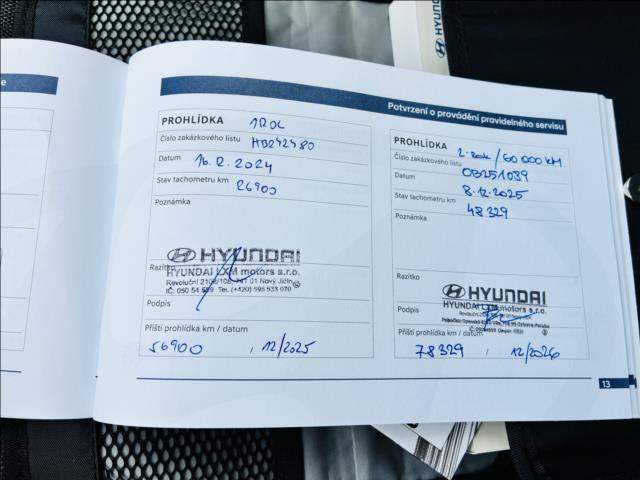 HYUNDAI
Potvrzení o provádění pravidelného servisu
PROHLÍDKA 1ROK
Číslo zakázkového listu HB242480
Datum 16.12.2024
Stav tachometru km 26900
Poznámka
HYUNDAI
Razítko HYUNDAI LXM motors s.r.o.
Revoluční 741 01 Nový Jičín
Tel. (+420) 595 533 070
Podpis
Příští prohlídka km / datum
56900 , 12/2025
PROHLÍDKA
Číslo zakázkového listu 2. rok / 60 000 KM
Datum OB251039
Stav tachometru km 8.12.2025
48329
Poznámka
Razítko
HYUNDAI
HYUNDAI LXM motors s.r.o.
Podpis
Příští prohlídka km / datum
78329 , 12/2026
13